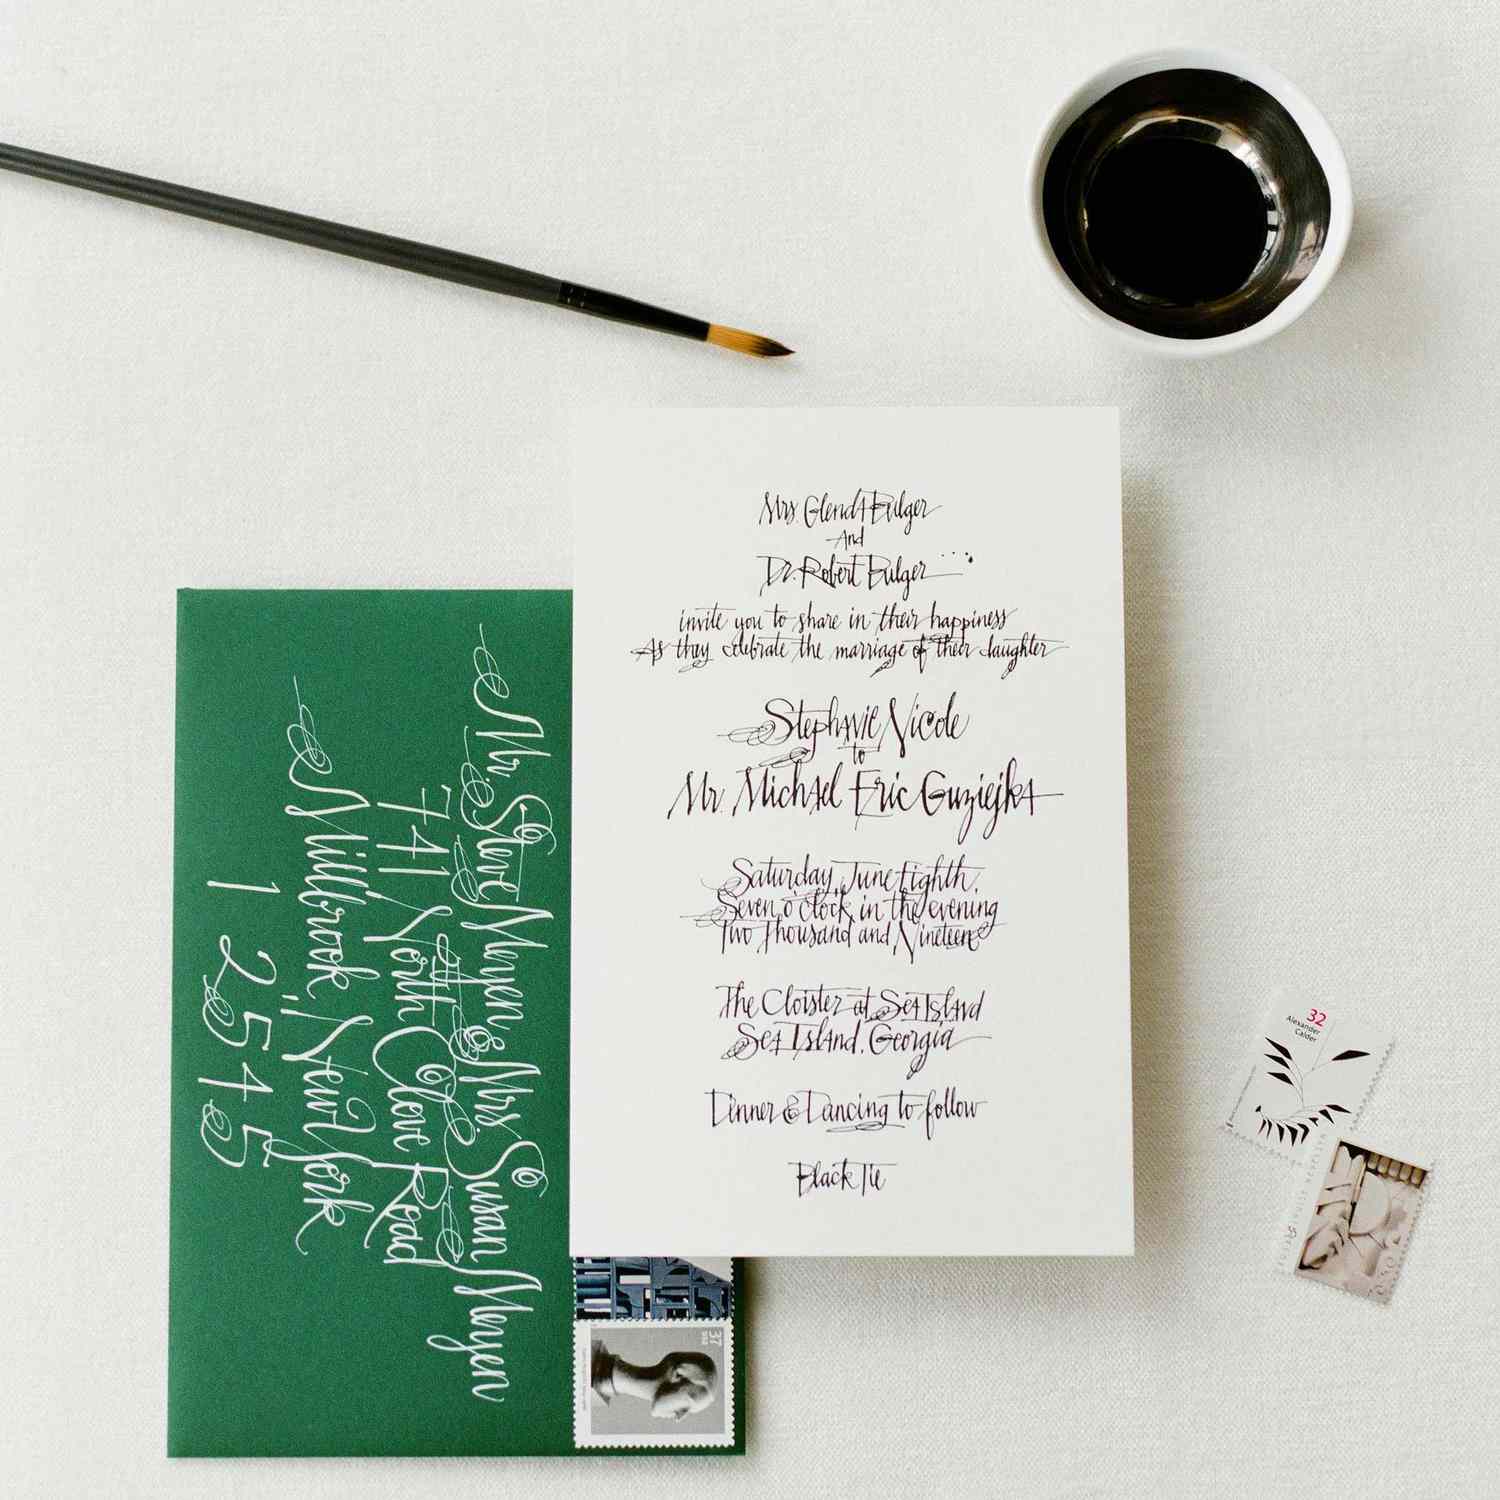 Mrs. Glenda Bulger
And
Dr. Robert Bulger
invite you to share in their happiness
As they celebrate the marriage of their daughter
Stephanie Nicole
to
Mr. Michael Eric Guziejka
Saturday, June Eighth,
Seven o'clock in the evening
Two Thousand and Nineteen
The Cloister at Sea Island
Sea Island, Georgia
Dinner & Dancing to follow
Black Tie
Mr. Steve Meyen & Mrs. Susan Meyen
741 North Clove Road
Millbrook, New York
12545
37
32
Alexander
Calder